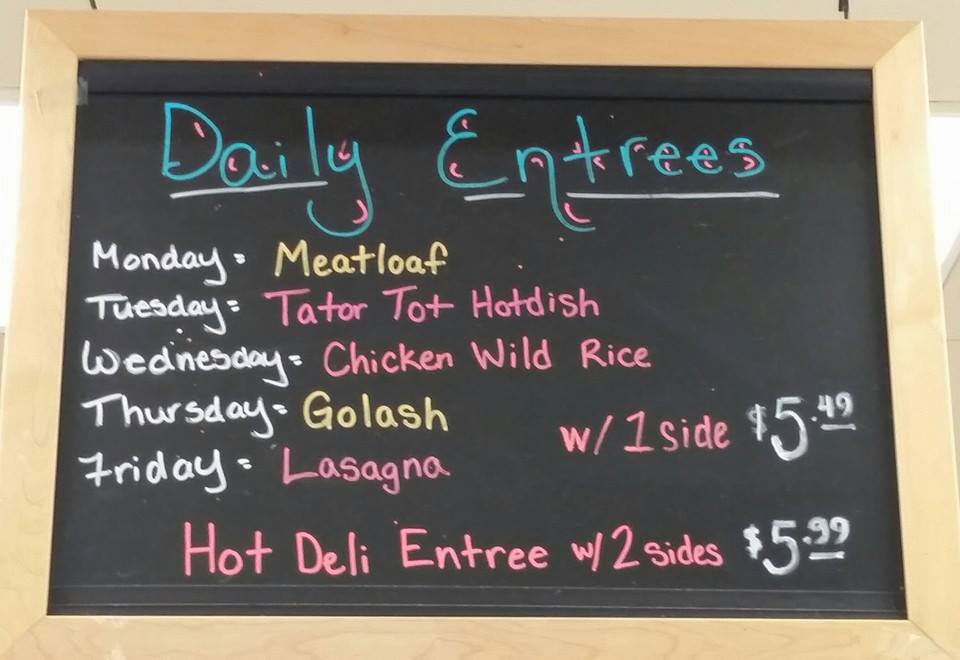 Daily Entrees
Monday= Meatloaf
Tuesday= Tator Tot Hotdish
Wednesday= Chicken Wild Rice
Thursday= Golash
w/ 1 side $5.49
Friday= Lasagna
Hot Deli Entree w/ 2 sides $5.99